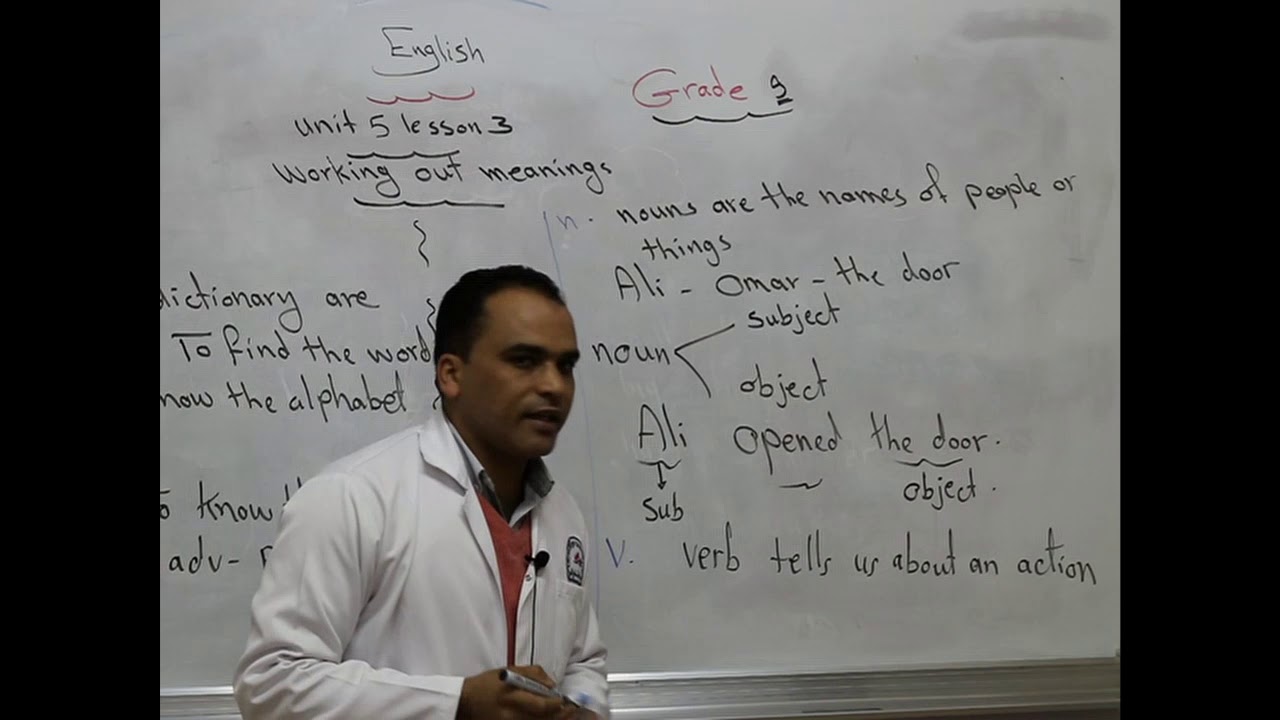 English
Grade 9
unit 5 lesson 3
Working out meanings
dictionary are
To find the word
now the alphabet
To know
adv-
n. nouns are the names of people or
things
Ali - Omar - the door
noun
subject
object
Ali opened the door.
Sub
object.
V. verb tells us about an action